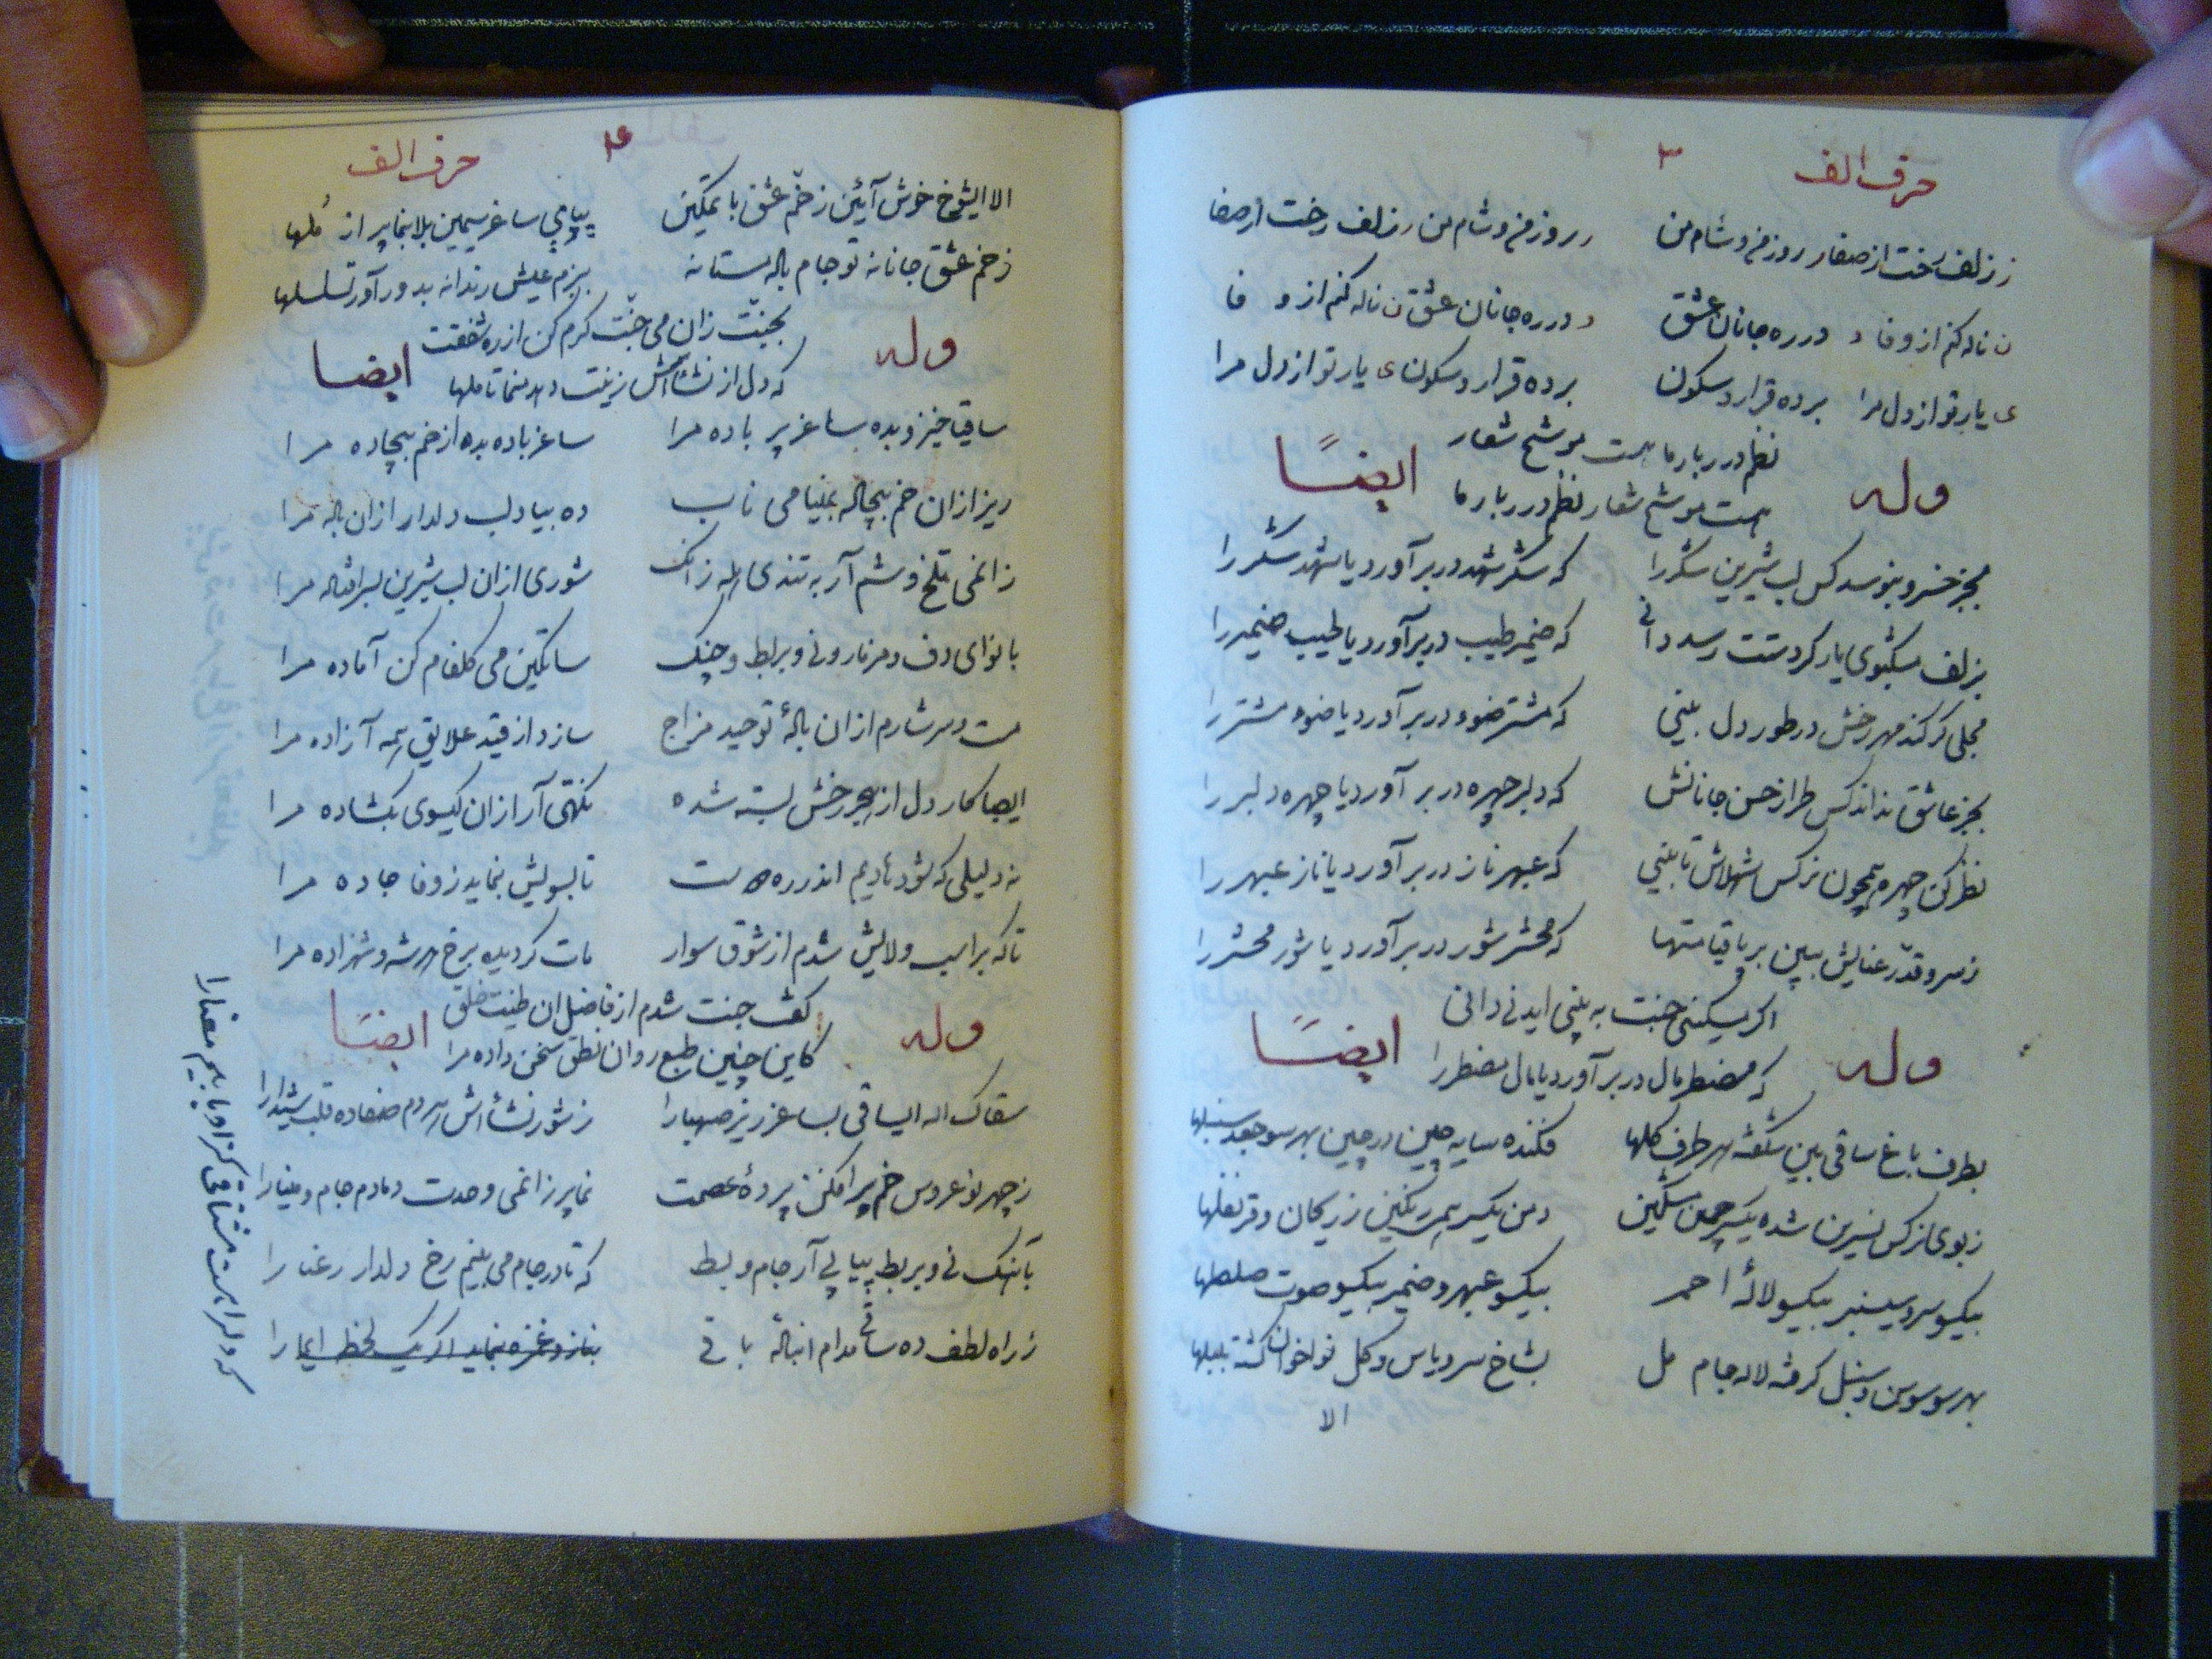 حرف الف ۳
ز زلف رخت از صفا ر روز من و شام من ر روز من و شام من ز زلف رخت از صفا
ن ناله کنم از وفا د در ره جانان عشق د در ره جانان عشق ن ناله کنم از و فا
ی یار تو از دل مرا برده قرار و سکون برده قرار و سکون ی یار تو از دل مرا
نظم درر بار ما هست موشح شعار
وله ایضاً
هست موشح شعار نظم درر بار ما
بجز خسرو نبوسد کس لب شیرین شکر را که شکر شهد در بر آورد یا شهد شکر را
بزلف مشکبوی یار کر دستت رسد دانی که ضمیر طیب در بر آورد یا طیب ضمیر را
مجلی کر کند مهر رخش در طور دل بینی که مشتر ضوء در بر آورد یا ضوء مشتر را
بجز عاشق نداند کس طراز حسن جانانش که دلبر چهره در بر آورد یا چهره دلبر را
نظر کن چهره همچون نرکس شهلاش تا بینی که عبهر ناز در بر آورد یا ناز عبهر را
ز سرو قد رعنایش ببین بر پا قیامتها که محشر شور در بر آورد یا شور محشر را
اکر مسکینی جنت به بینی ایدنی دانی
وله ایضاً
که مضطر مال در بر آورد یا مال مضطر را
بطرف باغ ساقی بین شکفته هر طرف کلها فکنده سایه چین در چین بهر سو جعد سنبلها
ز بوی نرکس نسرین شده یکسر چمن مشکین دمن یکسر همه رنکین ز ریحان و قرنفلها
بیکسو سرو سیسنبر بیکسو لالهٔ احمر بیکسو عبهر و ضمیر بیکسو صوت صلصلها
بهر سو سوسن و سنبل کرفته لاله جام مل بشاخ سرو یاس و کل نواخوان کشته بلبلها
الا
حرف الف ۴
الا ایشوخ خوش آیین ز خم عشق با تمکین پیاپی ساغر سیمین بلا بنما پر از ملها
ز خم عشق جانانه تو جام باله مستانه ببزم عیش رندانه بدور آور تسلسلها
بجنت زان می جنت کرم کن از ره شفقت
وله ایضا
که دل از نشئاش زینت دهد منما تاملها
ساقیا خیز و بده ساغر پر باده مرا ساغر باده بده از خم بیجاده مرا
ریز ازان خم بیجاله بمینا می ناب ده بیاد لب دلدار ازان باله مرا
زانمی تلخ وشم آر به تندی اله زانک شوری ازان لب شیرین بسر افتاله مرا
با نوای دف و مزمار و نی و بربط و چنک ساتکین می کلفام کن آماده مرا
مست و سرشارم ازان بالهٔ توحید مزاج سازد از قید علایق همه آزاده مرا
ایصبا کار دل از هجر رخش بسته شده نکهتی آر ازان کیسوی بکشاده مرا
نه دلیلی که شود نادیم اندر ره دوست تا بسویش بنماید ز وفا جاده مرا
تا که بر اسب ولایش شدم از شوق سوار مات کردیده برخ هر شه و شهزاده مرا
کفت جنت شدم از فاضل ان طینت خلق
وله ایضاً
کاین چنین طبع روان نطق سخن داده مرا
سقاک اله ایساقی بساغر ریز صهبا را ز شور نشأاش هر دم صفا ده قلب شیدا را
ز چهر نو عروس خم بر افکن پردهٔ عصمت نما پر زانمی وحدت دمادم جام و مینا را
بآهنک نی و بربط پیاپی آر جام و بط که تا در جام می بینم رخ دلدار رعنا را
ز راه لطف ده ساقی مدام انبالهٔ باقی بناز و غمزه بنماید اکر یک لحظه ایما را
که دلرا هست مشتاقی کز او یابیم معنا را